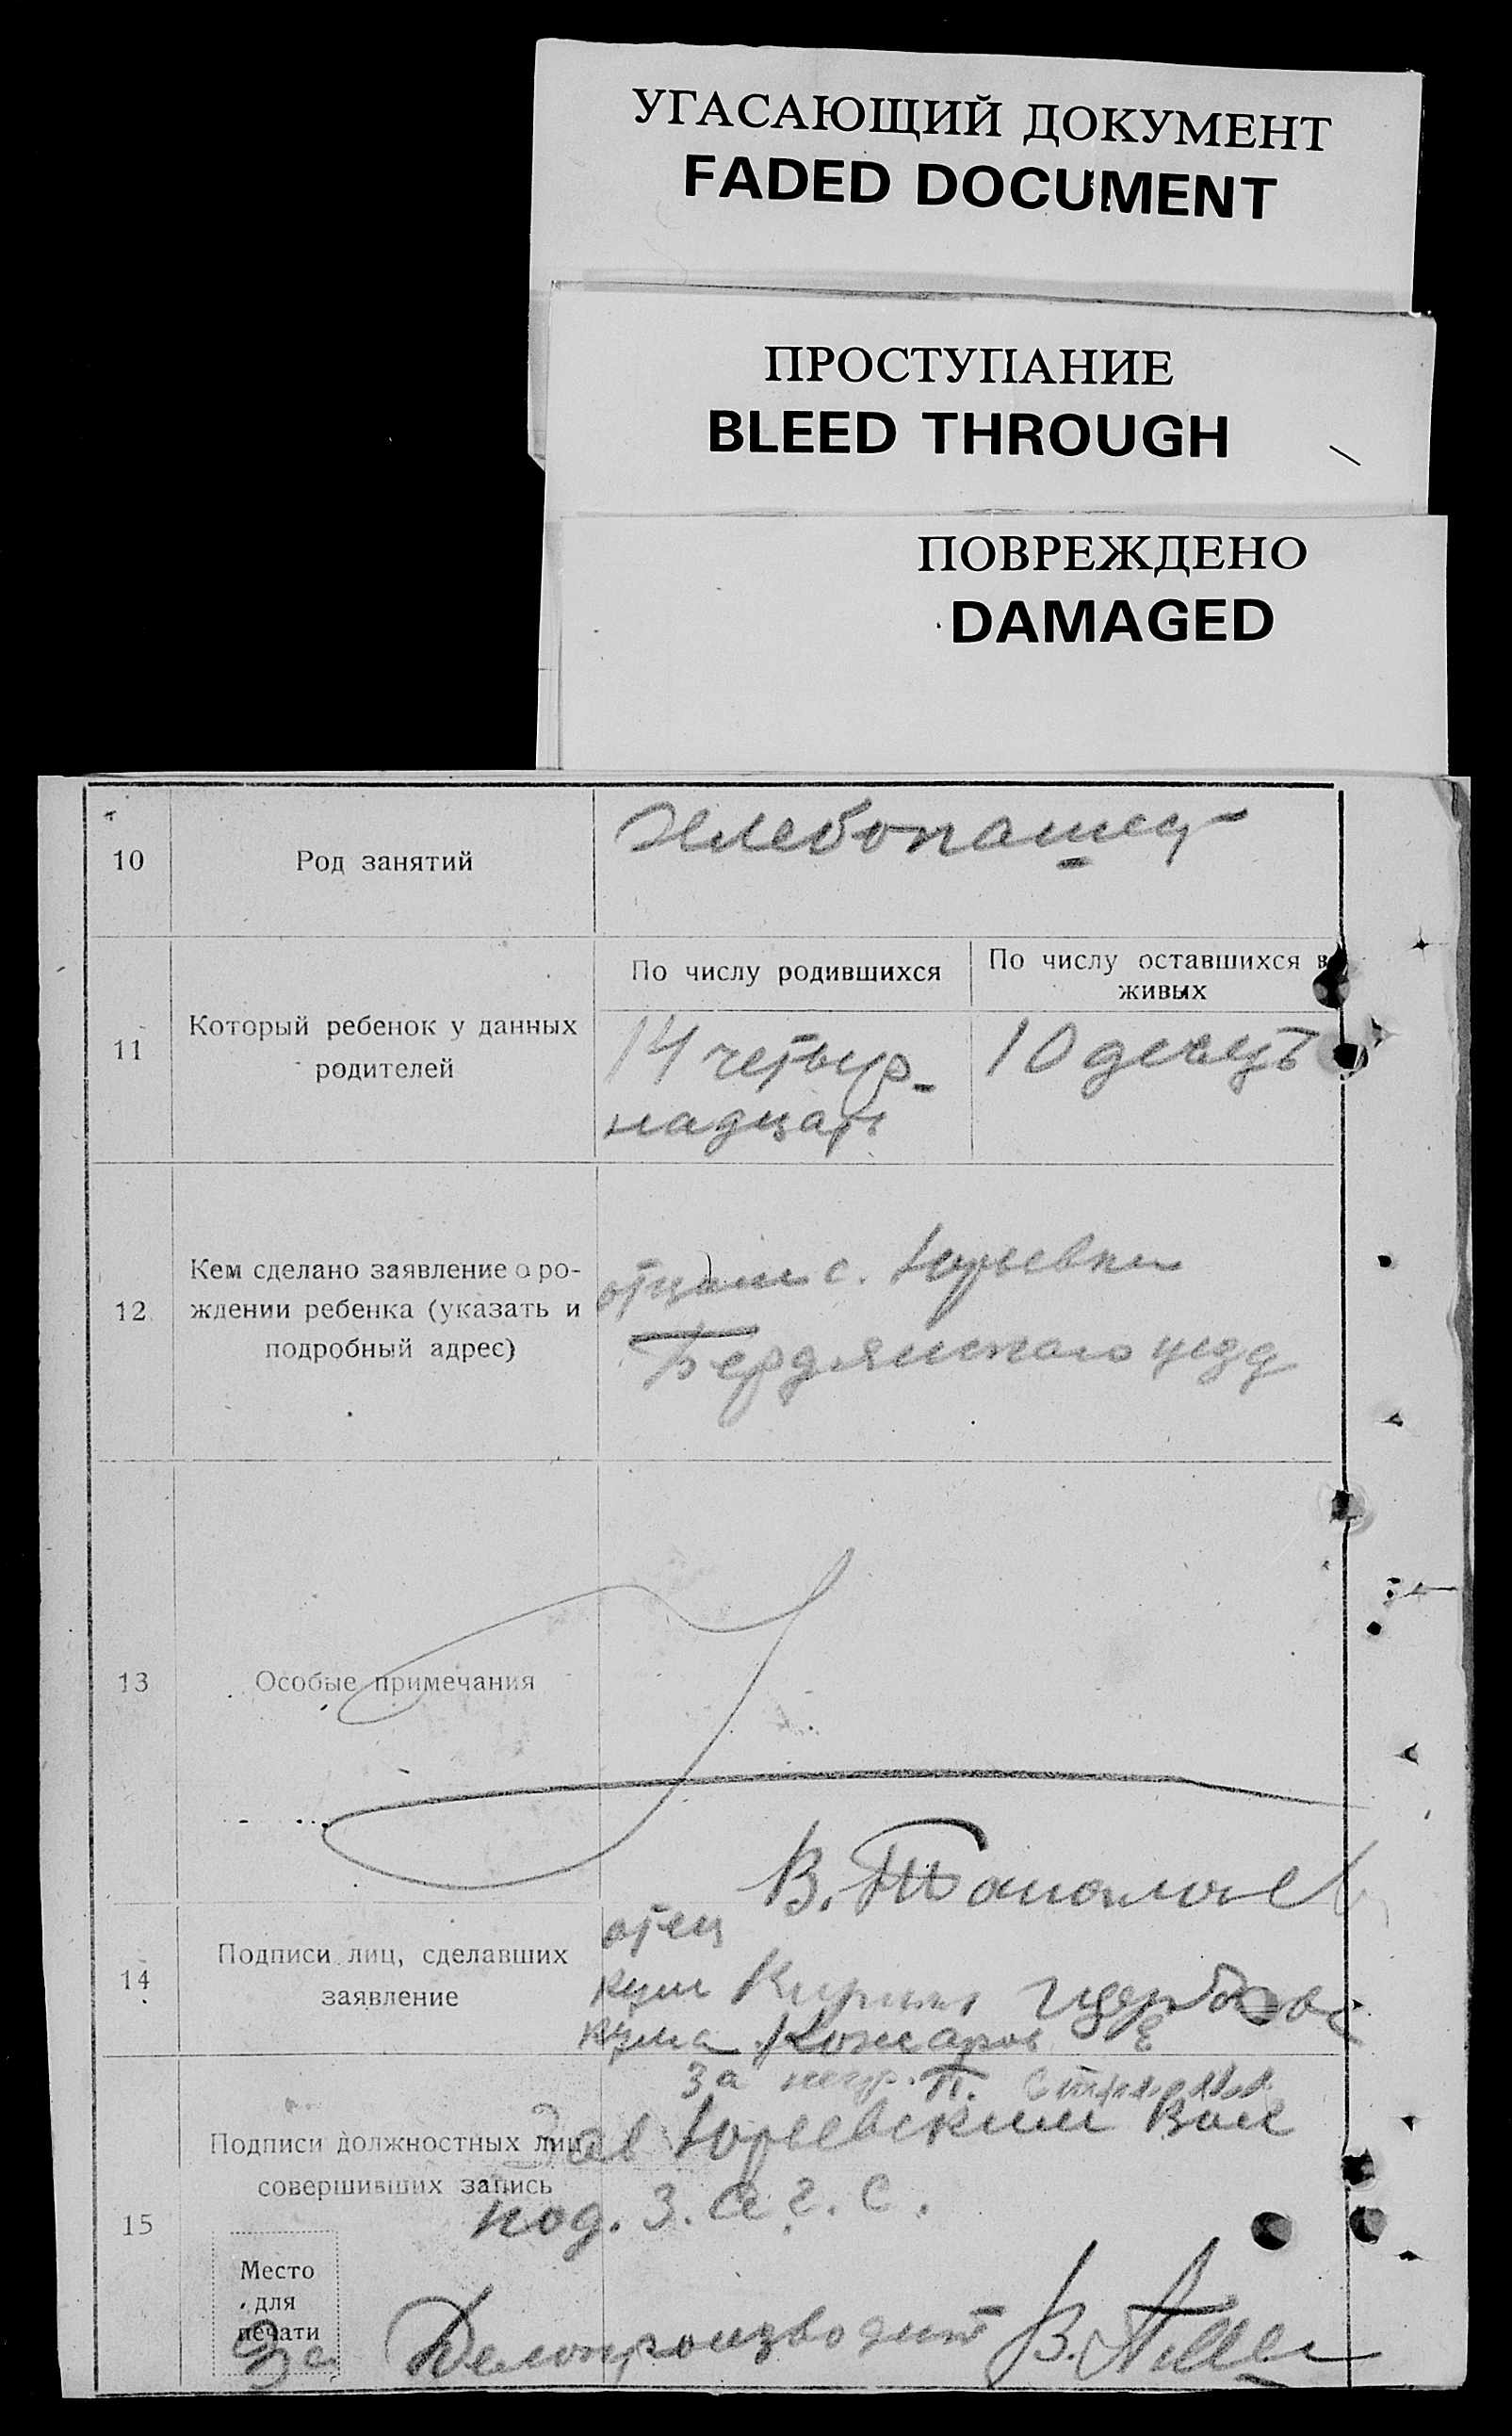 УГАСАЮЩИЙ ДОКУМЕНТ
FADED DOCUMENT
ПРОСТУПАНИЕ
BLEED THROUGH
ПОВРЕЖДЕНО
DAMAGED
10
Род занятий
Хлебопашец
11
Который ребенок у данных
родителей
По числу родившихся
14 четыр-
надцать
По числу оставшихся в
живых
10 десять
12
Кем сделано заявление о ро-
ждении ребенка (указать и
подробный адрес)
отцом с. Юрьевки
Бердянского уезд
13
Особые примечания
14
Подписи лиц, сделавших
заявление
отец
В.
кум Кирилл
кума
За негр. П.
15
Подписи должностных лиц,
совершивших запись
Зав Юрьевским Вол
под. З. а. г. с.
Место
для
печати
За Делопроизводит В.